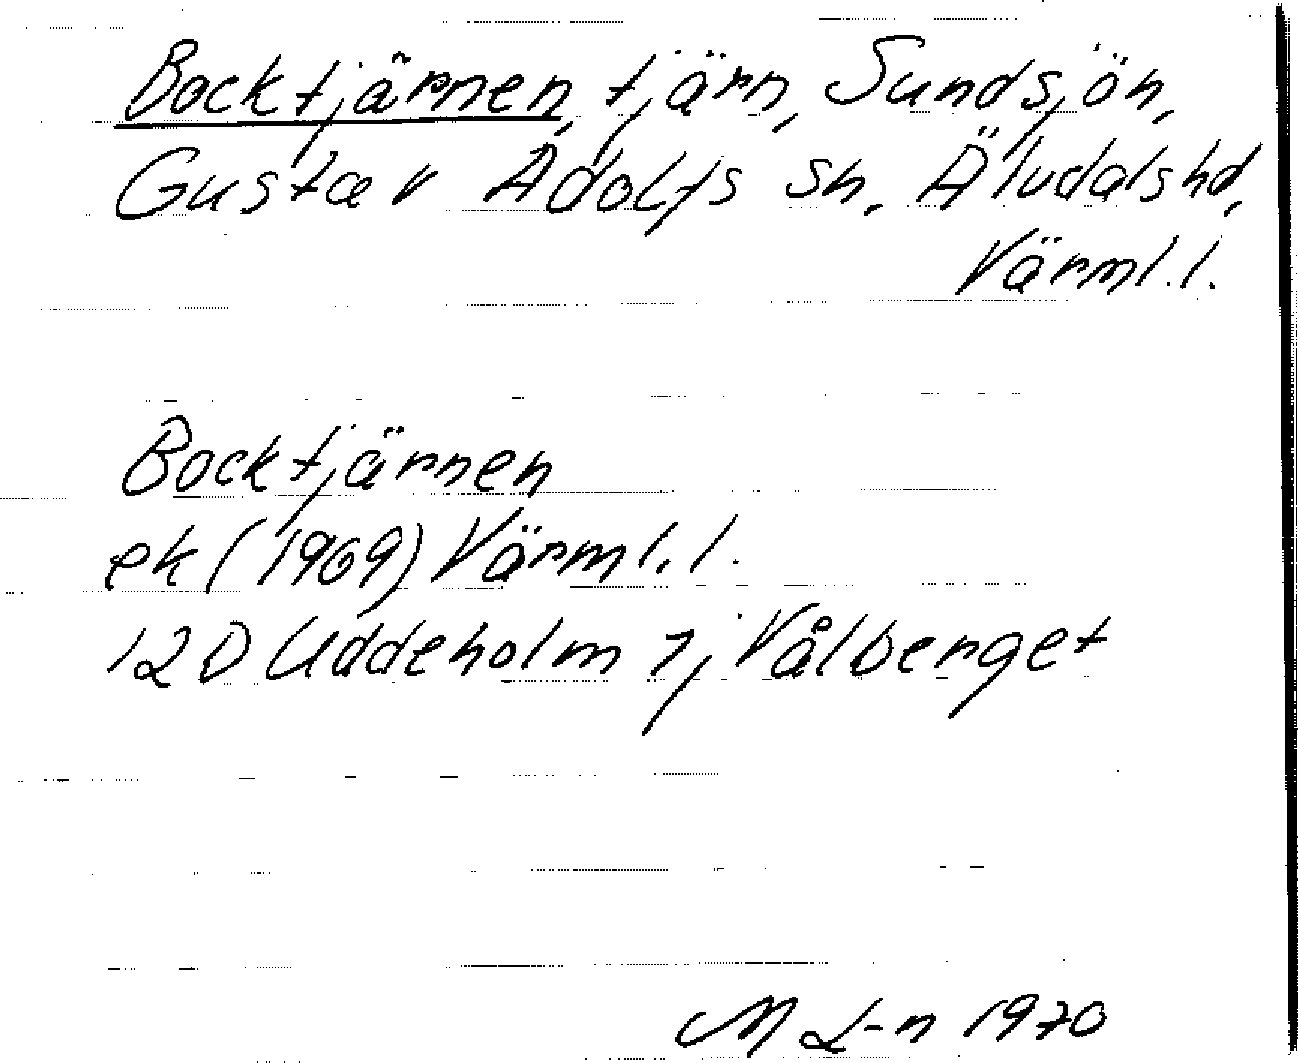 Bocktjärnen, tjärn, Sundsjön,
Gustav Adolfs sn, Älvdals hd,
Värml. l.
Bocktjärnen
ek (1969) Värml. l.
12D Uddeholm 7j Vålberget
M L-n 1970